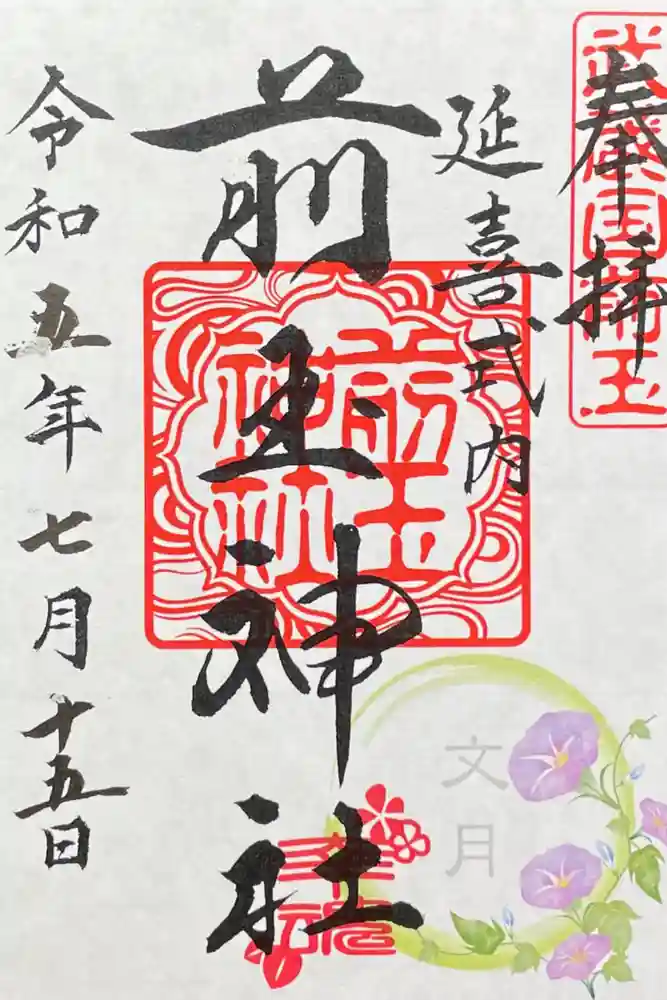 奉拝
武蔵国埼玉
延喜式内
前玉神社
前玉
神社
幸魂
文月
令和五年七月十五日